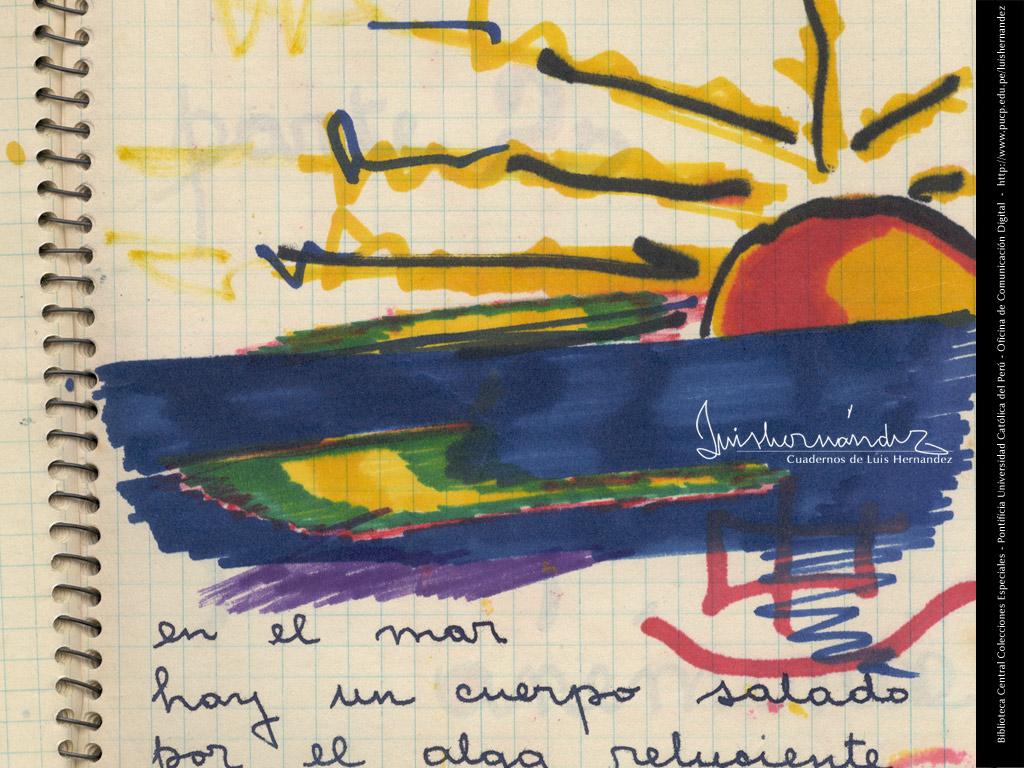 Luishernández
Cuadernos de Luis Hernandez
en el mar
hay un cuerpo salado
por el alga reluciente
Biblioteca Central Colecciones Especiales - Pontificia Universidad Católica del Perú - Oficina de Comunicación Digital - http://www.pucp.edu.pe/luishernandez